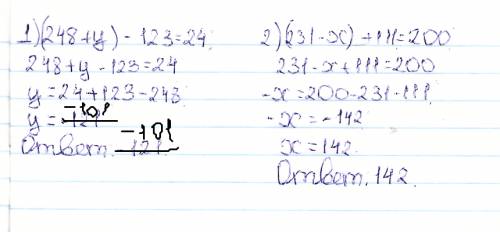 1)(248+y)-123=24
248+y-123=24
y=24+123-248
y=-101
Ответ. -101
2)(231-x)+111=200
231-x+111=200
-x=200-231-111
-x=-142
x=142.
Ответ. 142.